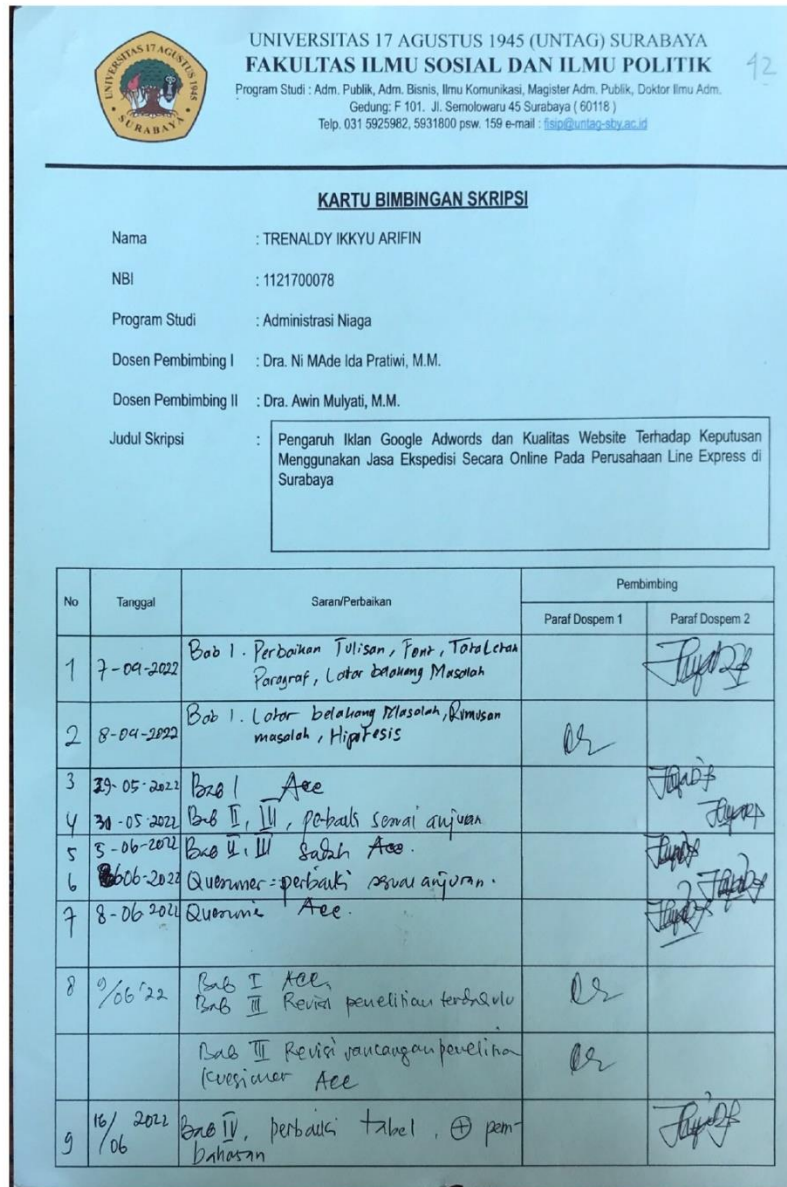 UNIVERSITAS 17 AGUSTUS 1945
SURABAYA
UNIVERSITAS 17 AGUSTUS 1945 (UNTAG) SURABAYA
FAKULTAS ILMU SOSIAL DAN ILMU POLITIK
42
Program Studi : Adm. Publik, Adm. Bisnis, Ilmu Komunikasi, Magister Adm. Publik, Doktor Ilmu Adm.
Gedung: F 101. Jl. Semolowaru 45 Surabaya ( 60118 )
Telp. 031 5925982, 5931800 psw. 159 e-mail : fisip@untag-sby.ac.id
KARTU BIMBINGAN SKRIPSI
Nama : TRENALDY IKKYU ARIFIN
NBI : 1121700078
Program Studi : Administrasi Niaga
Dosen Pembimbing I : Dra. Ni MAde Ida Pratiwi, M.M.
Dosen Pembimbing II : Dra. Awin Mulyati, M.M.
Judul Skripsi : Pengaruh Iklan Google Adwords dan Kualitas Website Terhadap Keputusan
Menggunakan Jasa Ekspedisi Secara Online Pada Perusahaan Line Express di
Surabaya
No Tanggal Saran/Perbaikan Pembimbing
Paraf Dospem 1 Paraf Dospem 2
1 7-04-2022 Bab 1. Perbaikan Tulisan, Font, Tata Letak
Paragraf, Latar belakang Masalah
2 8-04-2022 Bab 1. Latar belakang Masalah, Rumusan
masalah, Hipotesis
3 29-05-2022 Bab I Acc
4 30-05-2022 Bab II, III, perbaiki sesuai anjuran
5 5-06-2022 Bab II, III sudah Acc.
6 06-2022 perbaiki sesuai anjuran.
7 8-06 2022 Acc.
8 9/06 '22 Bab I Acc,
Bab II Revisi penelitian terdahulu
Bab III Revisi rancangan penelitian
Kuesioner Acc
9 16/06 2022 Bab IV, perbaiki tabel, ⊕ pem-
bahasan